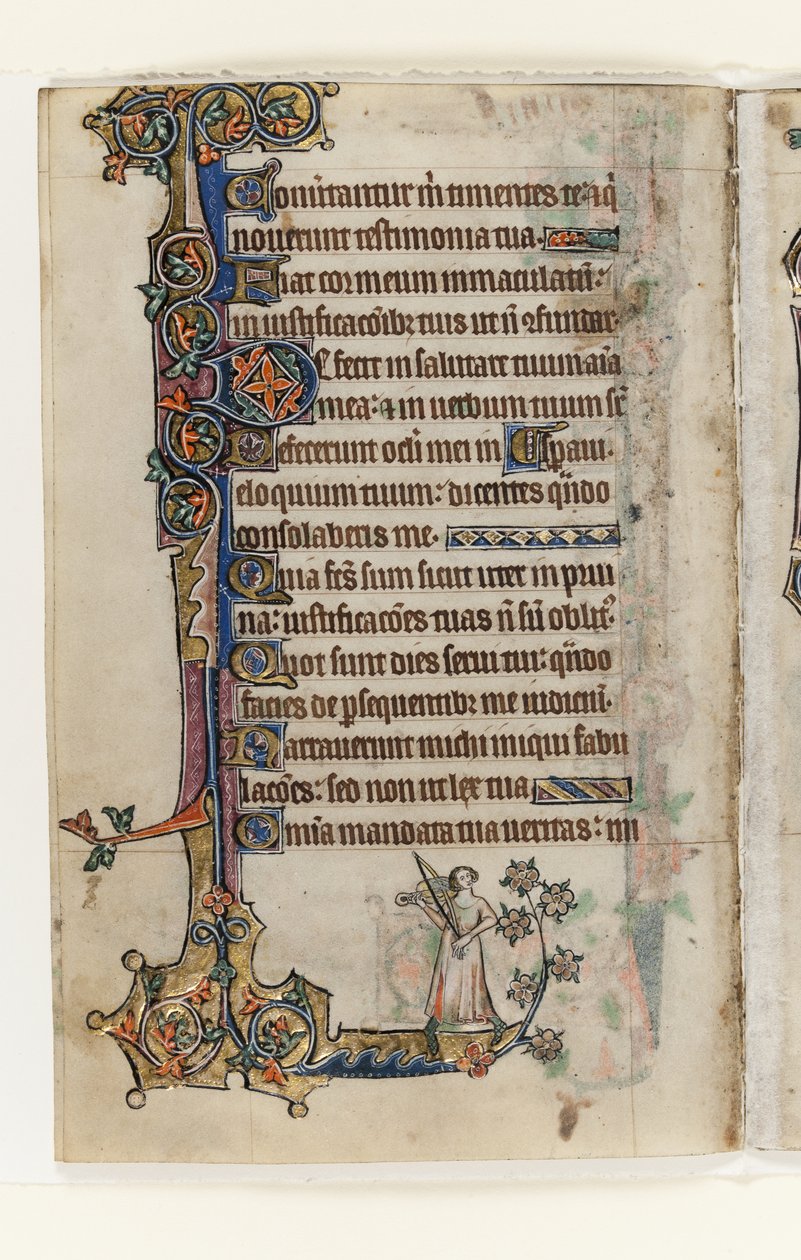 Conũtantur m̃ timentes te: ⁊ q̃
nouerunt testimonia tua.
Fiat cor meum immaculatũ:
in iustificacõibꝫ tuis ut ñ ꝯfundar.
Defecit in salutare tuum aĩa
mea: ⁊ in uerbum tuum sꝑ
Defecerunt ocl̃i mei in sꝑaui.
eloquium tuum: dicentes qñdo
consolaberis me.
Quia fc̃s sum sicut uter in prui
na: iustificacões tuas ñ sũ oblitꝰ.
Quot sunt dies serui tui: qñdo
facies de ꝑsequentibꝫ me iudiciũ.
Narrauerunt michi iniqui fabu
lacões: sed non ut lex tua
Omĩa mandata tua ueritas: ini